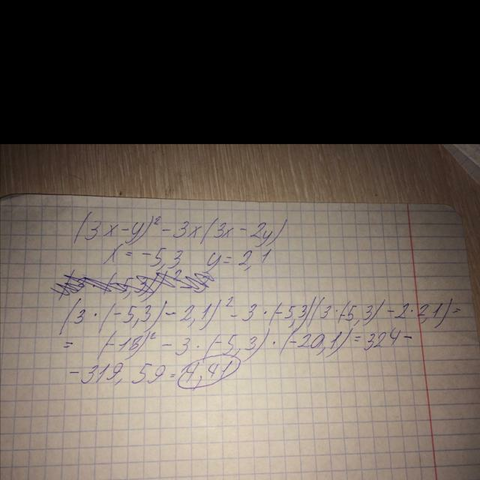 (3x-y)² - 3x(3x-2y)
x = -5,3 y = 2,1
(3·(-5,3)-2,1)² - 3·(-5,3)(3·(-5,3)-2·2,1)=
= (-18)² - 3·(-5,3)·(-20,1)=324-
-319,59=4,41